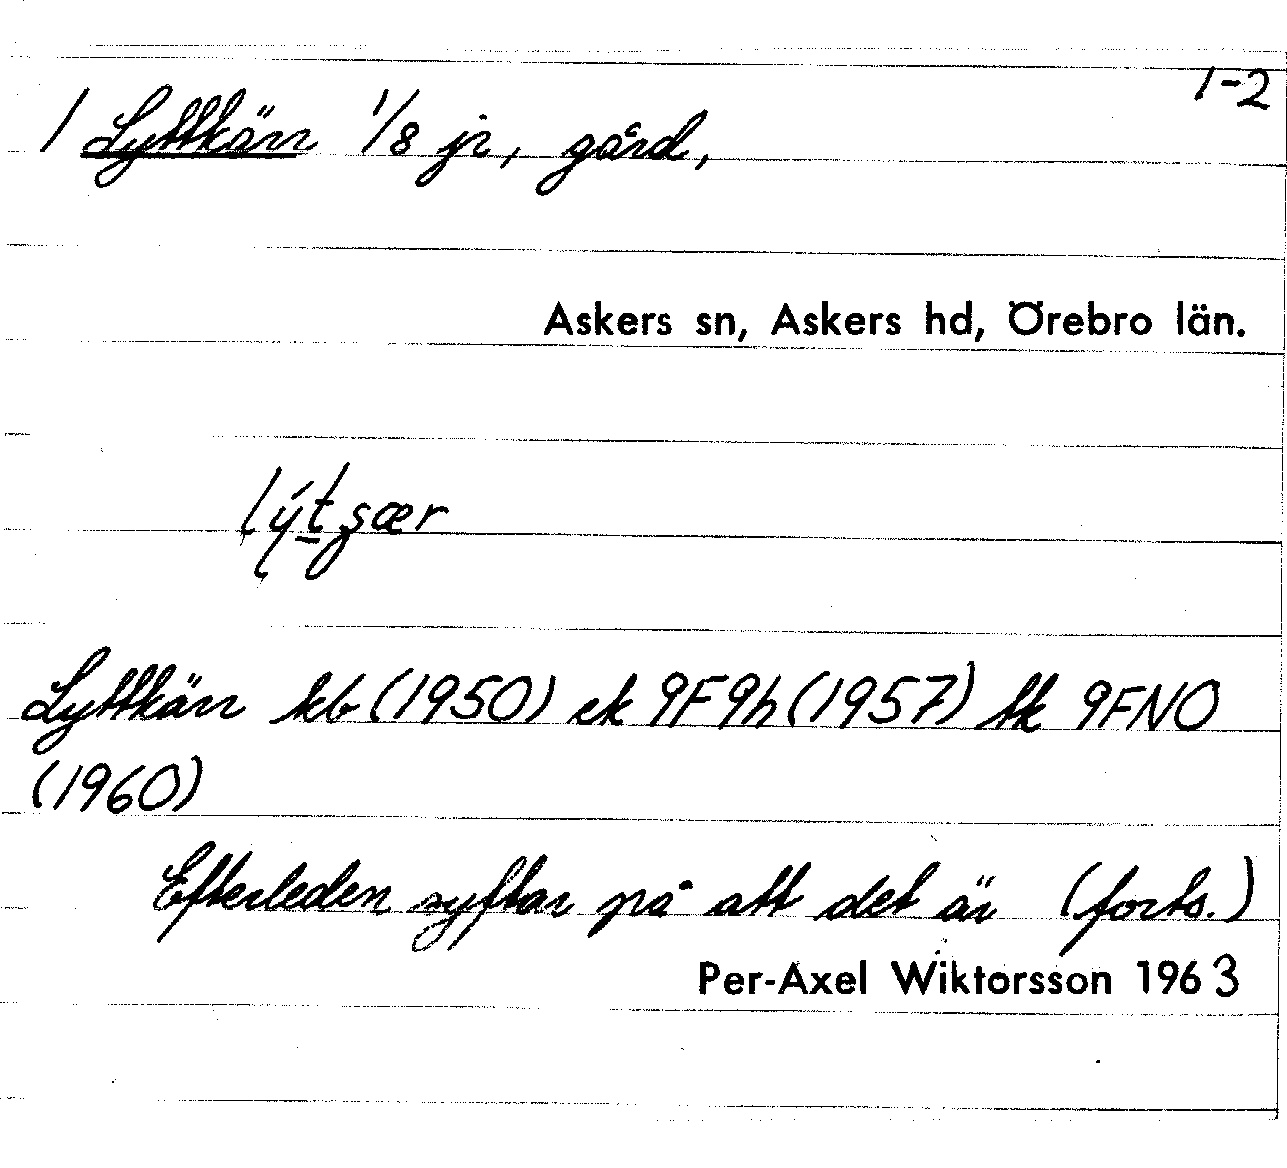 1-2
1 Lyttkärr 1/8 jr, gård,
Askers sn, Askers hd, Örebro län.
lýtʒær
Lyttkärr kb (1950) ek 9F9h (1957) tk 9FNO
(1960)
Efterleden syftar på att det är (forts.)
Per-Axel Wiktorsson 1963